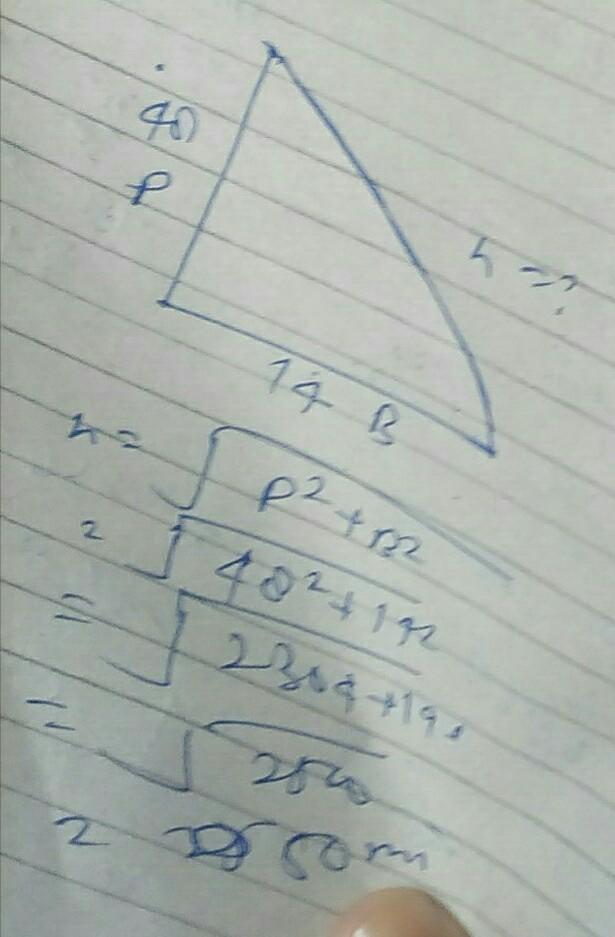 48
P
h = ?
14 B
h = √P² + B²
= √48² + 14²
= √2304 + 19
= √2500
= 50 m